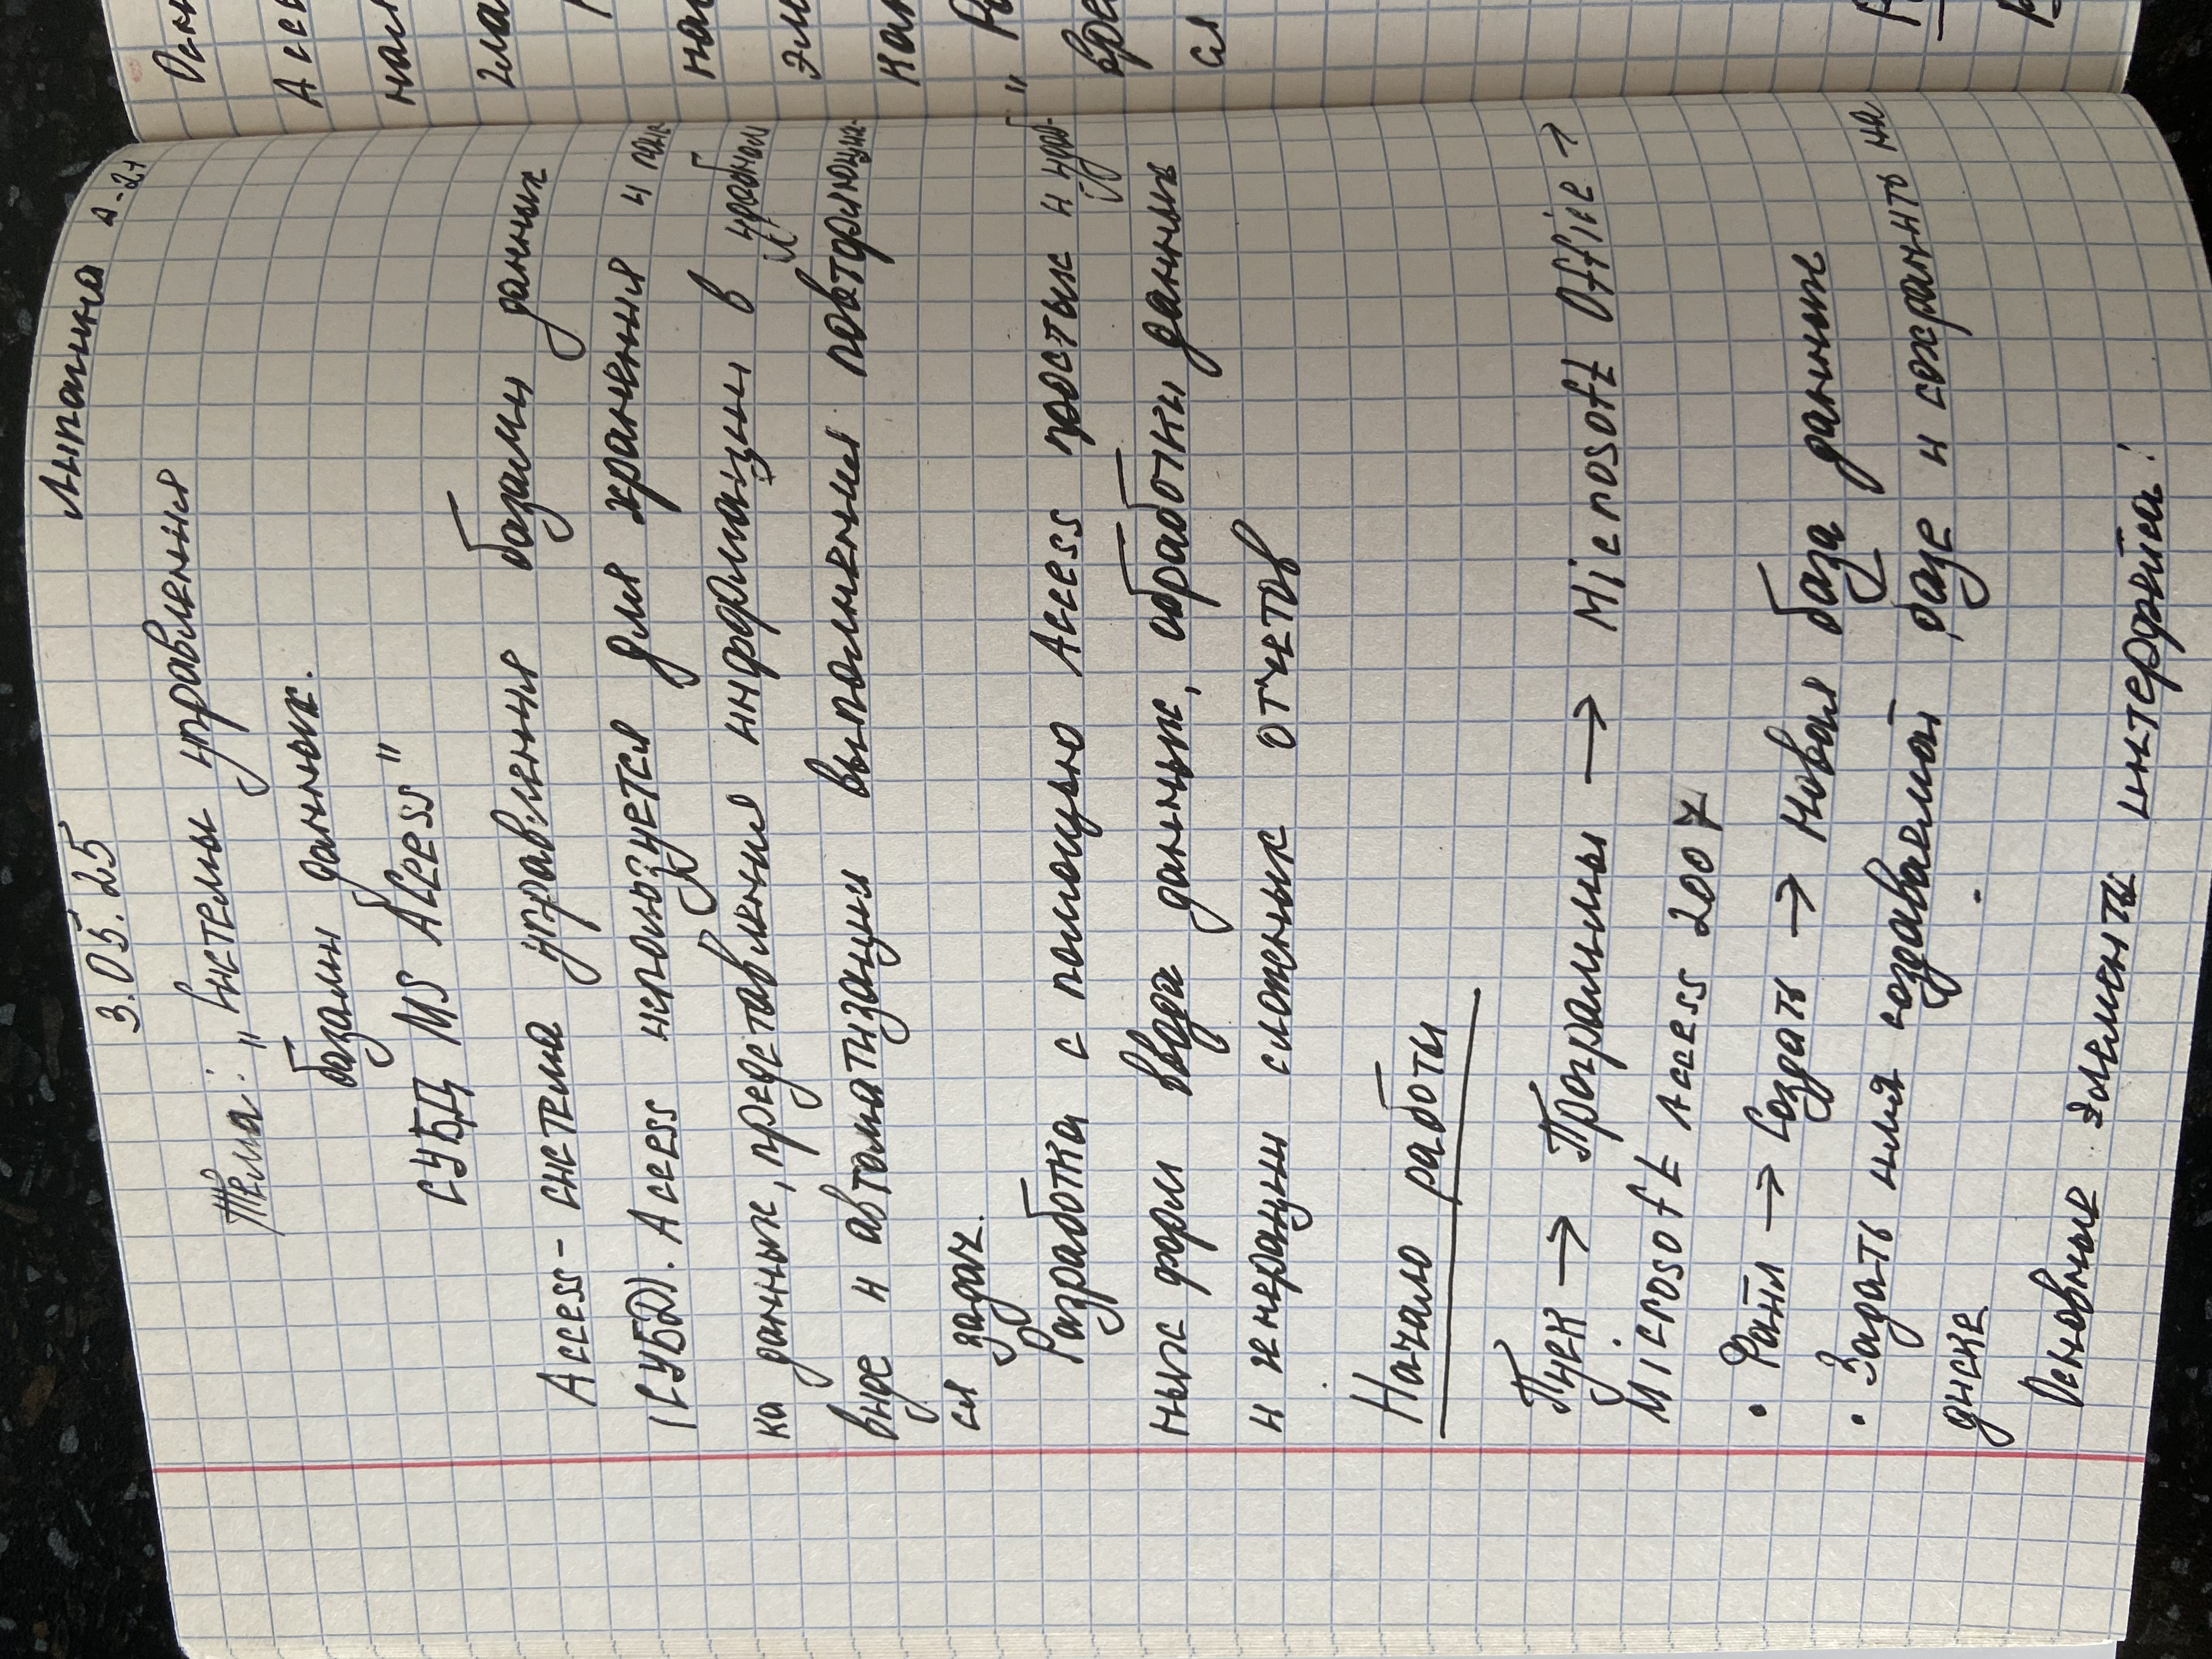 3.05.25 Липатина
Тема: "Системы управления
базами данных.
СУБД MS Access"
Access - система управления базами данных
(СУБД). Access используется для хранения и поис
ка данных, представление информации в удобном
виде и автоматизации выполнения повторяющих-
ся задач.
Разработка с помощью Access простых и удоб-
ных форм ввода данных, обработки данных
и генерации сложных отчетов
Начало работы
Пуск → Программы → Microsoft Office →
Microsoft Access 2007
• Файл → Создать → Новая база данные
• Задать имя создаваемой базе и сохранить на
диске
Основные элементы интерфейса:
Acce